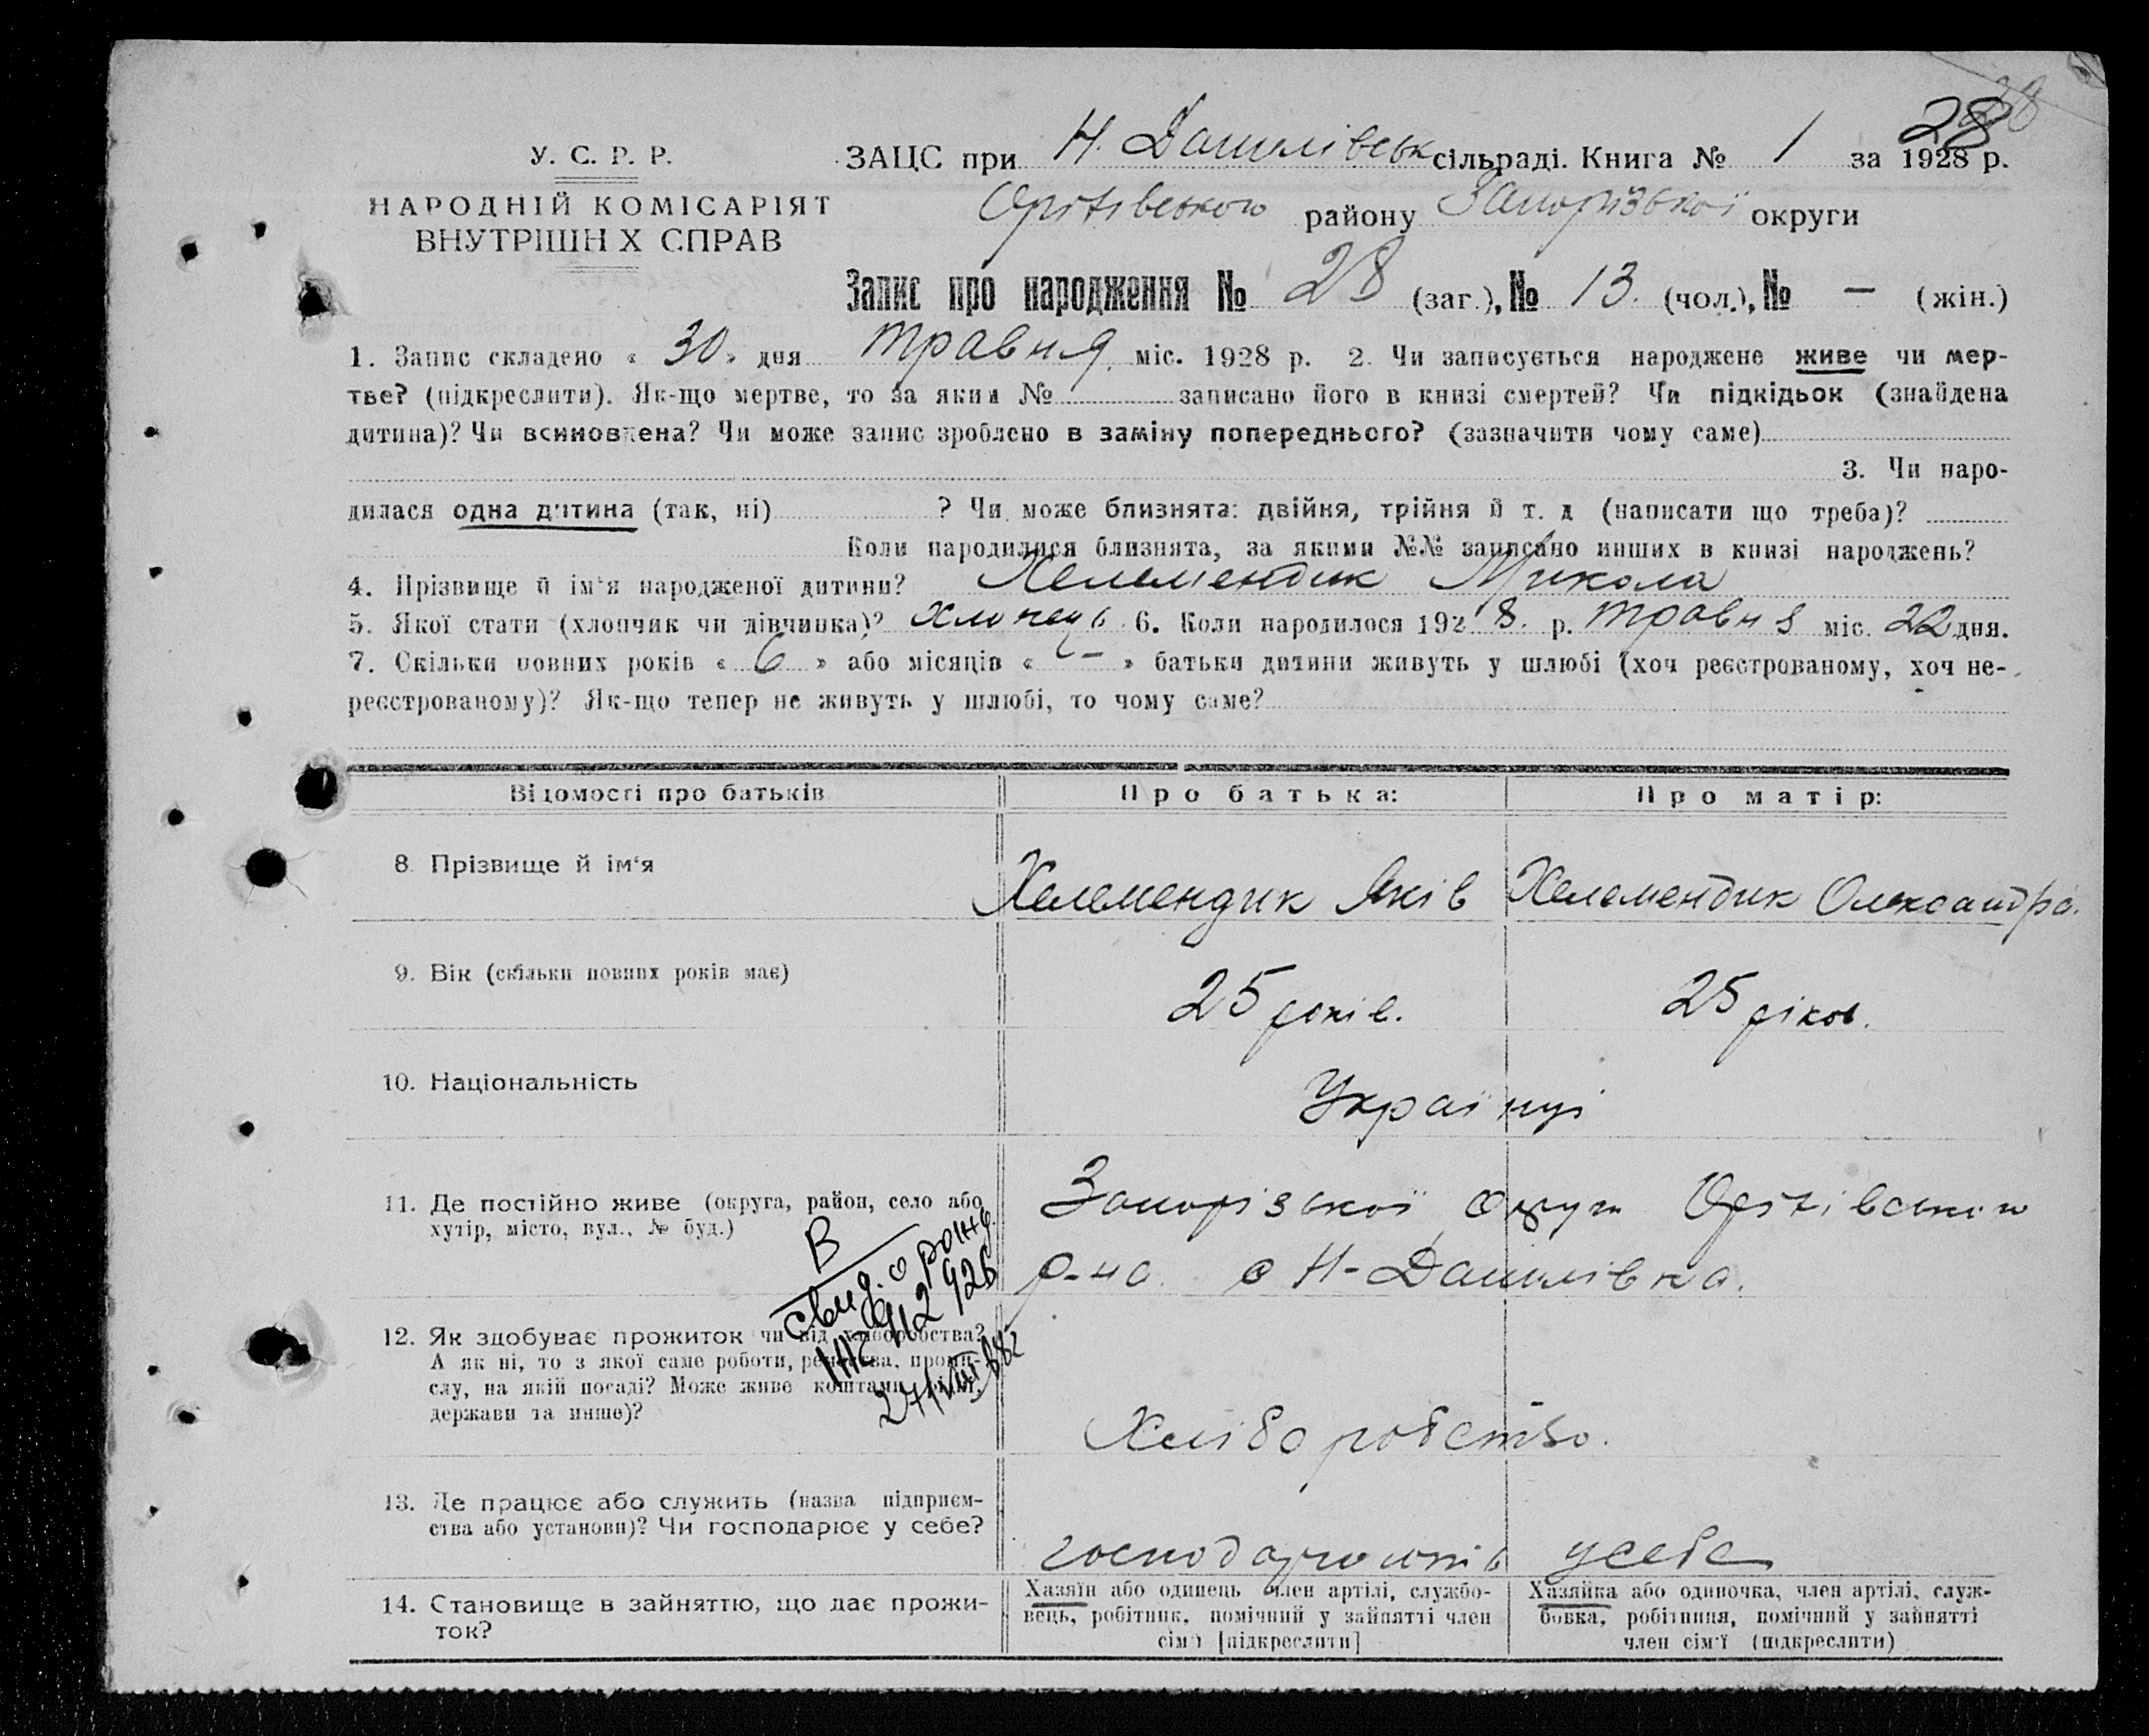 28
У. С. Р. Р.
НАРОДНІЙ КОМІСАРІЯТ
ВНУТРІШН Х СПРАВ
ЗАЦС при Н. Данилівськ сільраді. Книга № 1 за 1928 р.
Оріхівського району Запорізької округи
Запис про народження № 28 (заг.), № 13. (чол.), № — (жін.)
1. Запис складено « 30 » дня травня міс. 1928 р. 2. Чи записується народжене живе чи мер-
тве? (підкреслити). Як-що мертве, то за яким № записано його в книзі смертей? Чи підкідьок (знайдена
дитина)? Чи всиновлена? Чи може запис зроблено в заміну попереднього? (зазначити чому саме)
3. Чи наро-
дилася одна дитина (так, ні) ? Чи може близнята: двійня, трійня й т. д (написати що треба)?
Коли народилися близнята, за якими №№ записано инших в книзі народжень?
4. Прізвище й ім‘я народженої дитини? Хелемендик Микола
5. Якої стати (хлопчик чи дівчинка)? хлопець 6. Коли народилося 1928. р. травня міс. 22 дня.
7. Скільки повних років « 6 » або місяців « – » батьки дитини живуть у шлюбі (хоч реєстрованому, хоч не-
реєстрованому)? Як-що тепер не живуть у шлюбі, то чому саме?
Відомості про батьків
Про батька:
Про матір:
8. Прізвище й ім‘я
Хелемендик Яків
Хелемендик Олександра.
9. Вік (скільки повних років має)
25 років.
25 ріков.
10. Національність
Українці
11. Де постійно живе (округа, район, село або
хутір, місто, вул., № буд.)
Запорізької округи Оріхівського
р-на. с Н-Данилівка.
В
свид. о рожд.
12. Як здобуває прожиток чи від хліборобства?
А як ні, то з якої саме роботи, ремества, промис-
лу, на якій посаді? Може живе коштами рідні,
держави та инше)?
Хліборобство.
13. Де працює або служить (назва підприєм-
ства або установи)? Чи господарює у себе?
господарюють у себе
14. Становище в зайняттю, що дає прожи-
ток?
Хазяїн або одинець член артілі, службо-
вець, робітник, помічний у зайнятті член
сім‘ї [підкреслити]
Хазяйка або одиночка, член артілі, служ-
бовка, робітниця, помічний у зайнятті
член сім‘ї (підкреслити)